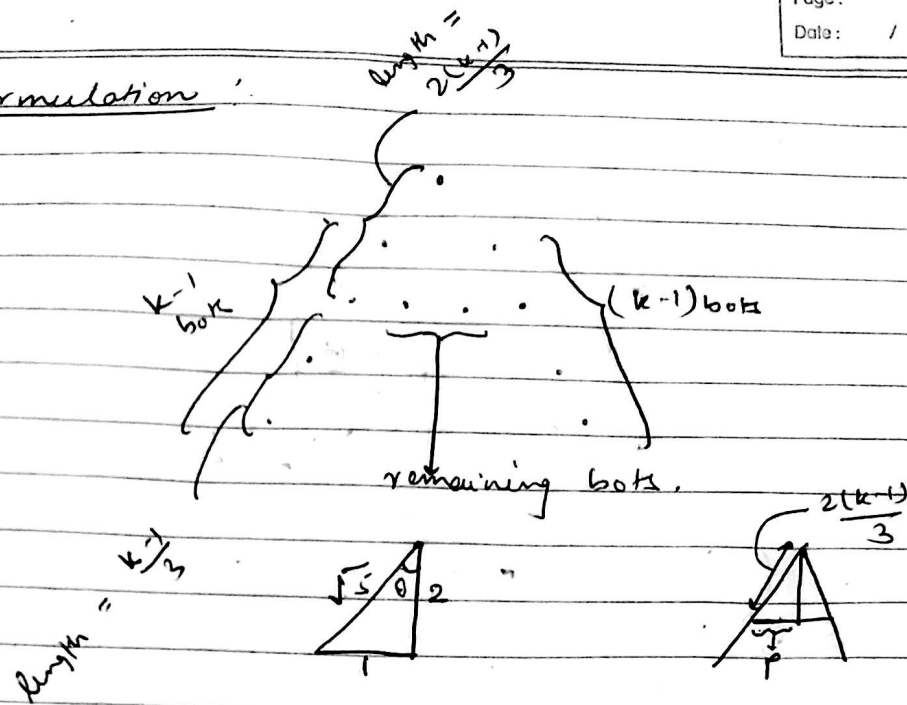 Page:
Date: /
rmulation :
length =
2(k-1)/3
k-1
bots
(k-1) bots
remaining bots.
length = k-1/3
√5 θ 2
1
2(k-1)
3
p